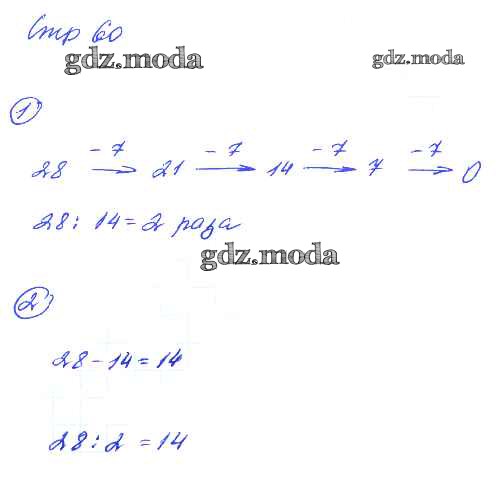 Стр 60
gdz.moda
gdz.moda
1)
-7 -7 -7 -7
28 → 21 → 14 → 7 → 0
28 : 14 = 2 раза
gdz.moda
2)
28 - 14 = 14
28 : 2 = 14